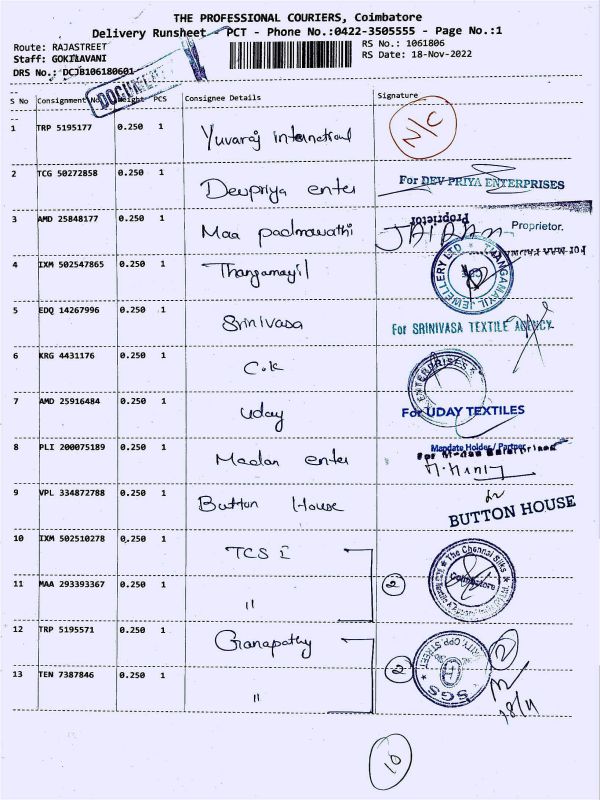 THE PROFESSIONAL COURIERS, Coimbatore
Delivery Runsheet - PCT - Phone No.:0422-3505555 - Page No.:1
Route: RAJASTREET
RS No.: 1061806
Staff: GOKILAVANI
RS Date: 18-Nov-2022
DRS No.: DCJB106180601
DOCUMENT
S No Consignment No Weight PCS Consignee Details Signature
1 TRP 5195177 0.250 1 Yuvaraj international N/C
2 TCG 50272858 0.250 1 Devpriya enter For DEV PRIYA ENTERPRISES
Proprietor
3 AMD 25848177 0.250 1 Maa padmavathi JAIRAM Proprietor.
4 IXM 502547865 0.250 1 Thangamayil THANGAMAYIL JEWELLERY LTD
5 EDQ 14267996 0.250 1 Srinivasa For SRINIVASA TEXTILE AGENCY
6 KRG 4431176 0.250 1 C.K ENTERPRISES
7 AMD 25916484 0.250 1 Uday For UDAY TEXTILES
Mandate Holder / Partner
8 PLI 200075189 0.250 1 Madan enter
9 VPL 334872788 0.250 1 Button House BUTTON HOUSE
10 IXM 502510278 0.250 1 TCS I The Chennai Silks Coimbatore
11 MAA 293393367 0.250 1 " 2
12 TRP 5195571 0.250 1 Ganapathy 2 SGS OPP STREET 2
13 TEN 7387846 0.250 1 " 18/11
10